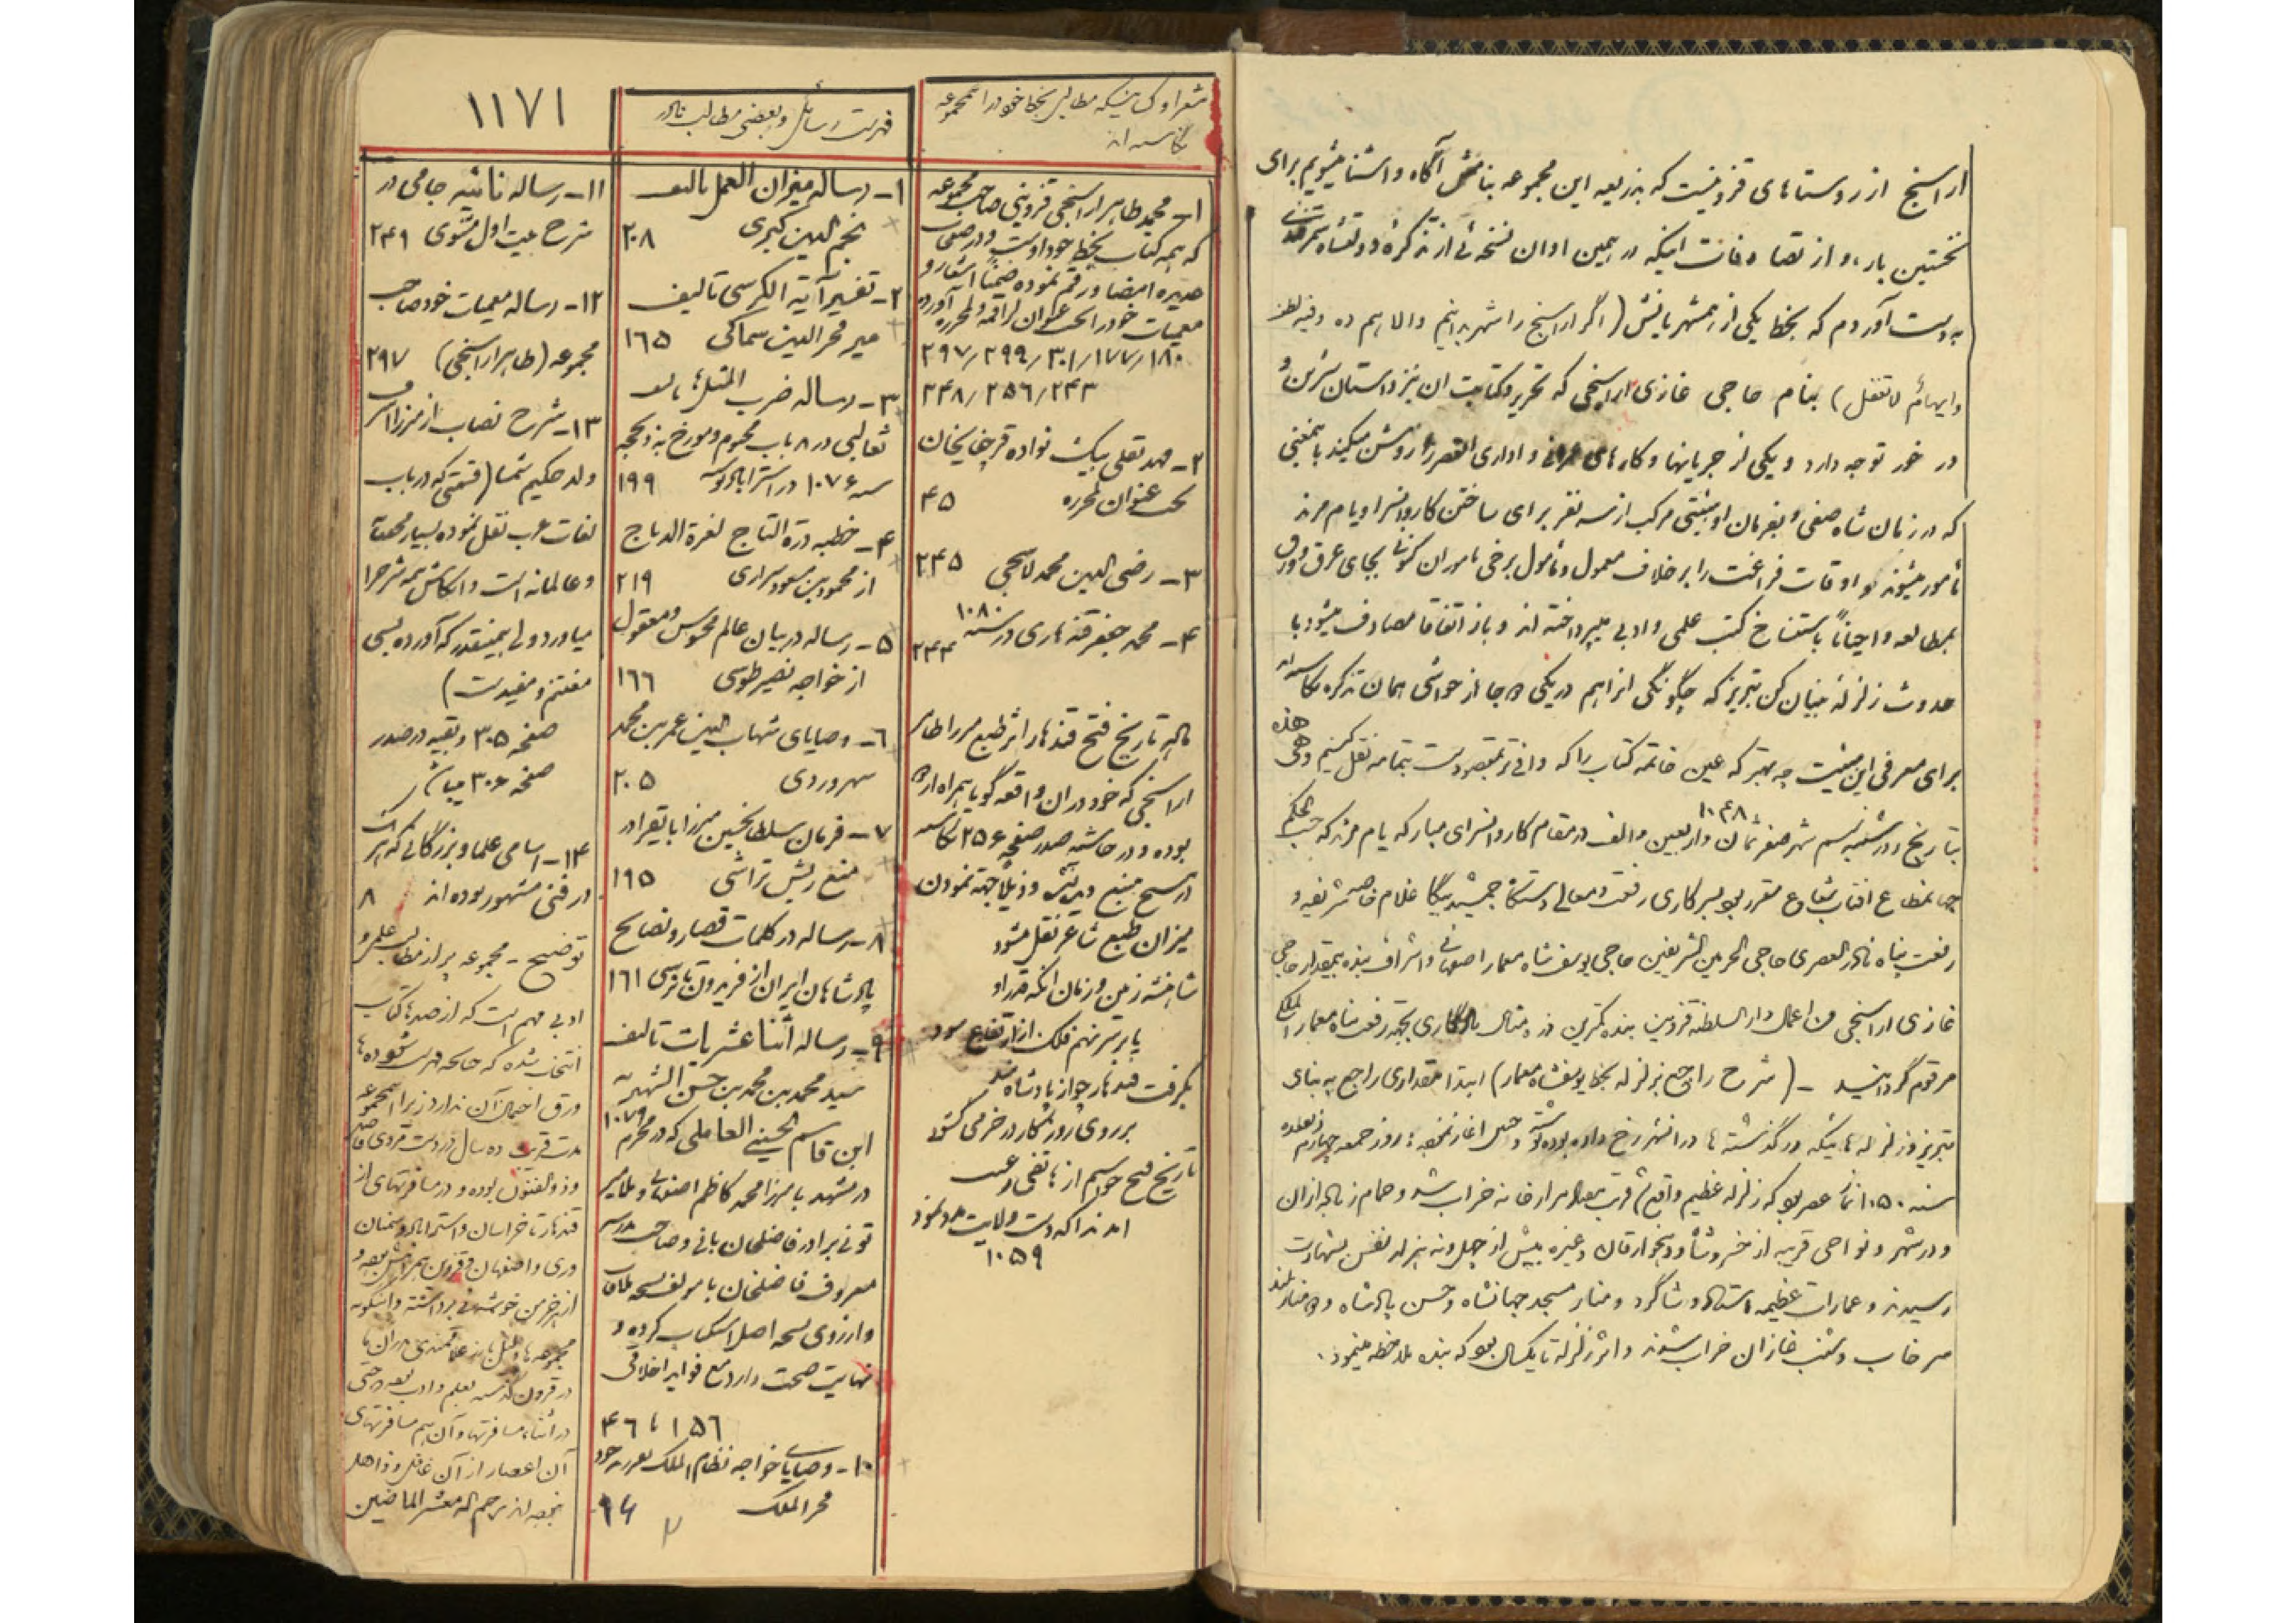 اراسنج از روستاهای قزوینست که بذریعه این مجموعه بنامش آگاه و آشنا میشویم برای
نخستین بار، و از تصادفات اینکه در همین اوان نسخه‌ئی از تذکره دولتشاه سمرقندی
بدست آوردم که بخط یکی از همشهریانش (اگر اراسنج را شهر بدانیم والا هم ده وفیه نظر
وایهام لاتغفل) بنام حاجی غازی اراسنجی که تحریر و کتابت ان نیز داستان شیرین و
در خور توجه دارد و یکی از جریانها و کارهای عمرانی و اداری العصر را روشن میکند بایمعنی
که در زمان شاه صفی و بفرمان او هیئتی مرکب از سه نفر برای ساختن کاروانسرا و یام مرند
مأمور میشوند و اوقات فراغت را بر خلاف معمول و مأمول برخی ماموران کنونی بجای عرق و ورق
بمطالعه و احیاناً باستنساخ کتب علمی و ادبی میپرداخته اند و باز اتفاقا مصادف میشود با
حدوث زلزله بنیان کن تبریز که چگونگی انراهم در یکی دو جا از حواشی همان تذکره نگاشته‌اند
برای معرفی این هیئت چه بهتر که عین خاتمه کتاب را که وافی بمقصودست بتمامه نقل کنیم وهی هذه
بتاریخ روز شنبه بیستم شهر صفر ثمان و اربعین و الف ۱۰۴۸ در مقام کاروانسرای مبارکه یام مرند که حسب الحکم
جهانمطاع افتاب شعاع مقرر بود بسرکاری رفعت و معالی دستگاه جمشید بیگا غلام خاصه شریفه و
رفعت پناه نادر العصری حاجی الحرمین الشریفین حاجی یوسف شاه معمار اصفهانی و اشراف بنده بیمقدار حاجی
غازی اراسنجی من اعمال دار السلطنه قزوین بنده کمترین در دنبال یادگاری بجهة رفعت پناه معمار الملک
مرقوم گردانید - (شرح راجع بزلزله بخط یوسفشاه معمار) ابتدا مقداری راجع به بنای
تبریز و زلزله هائیکه در گذشته ها در انشهر رخ داده بوده نوشته و چنین اغاز نموده: روز جمعه چهارم ذیقعده
سنه ۱۰۵۰ نماز عصر بود که زلزله عظیم واقع قرب هزار خانه خراب شد و حمام زیاده ازان
و در شهر و نواحی قریبه از خسروشاه و دیخوارقان و غیره بیش از چهل و نه هزار نفس بشهادت
رسیدند و عمارات عظیمه استاد و شاگرد و منار مسجد جهانشاه و حسن پادشاه و دو منار بلند
سرخاب و شنب غازان خراب شدند و اثر زلزله تا یکسال بود که بنده ملاحظه مینمود.
شعرا و کسانیکه مطالبی بخط خود در این مجموعه
نگاشته اند
۱- محمد طاهر اراسنجی قزوینی صاحب مجموعه
که همه کتاب بخط خود اوست و در صفحات
عدیده امضا و رقم نموده ضمناً اشعار و
معمیات خود را تحت عنوان لراقمه و لمحرره آورده
۱۸۰/۱۷۷/۳۰۱/۲۹۹/۲۹۷
۲۴۳/۲۵۶/۲۴۸
۲- مهدیقلی بیک نواده قرچغایخان
تحت عنوان لمحرره ۴۵
۳- رضی الدین محمد لاهیجی ۲۴۵
۴- محمد جعفر قندهاری در سنه ۱۰۸۰ ۲۴۴
ماده تاریخ فتح قندهار اثر طبع میرزا طاهر
اراسنجی که خود در ان واقعه گویا همراه اردو
بوده و در حاشیه صدر صفحه ۲۵۶ نگاشته
میزان طبع شاعر نقل میشود
شاهنشه زمین و زمان انکه قدر او
پا بر سر نهم فلک از ارتفاع سود
بگرفت قندهار چو از پادشاه هند
بر روی روزگار در خرمی گشود
تاریخ فتح جستم از هاتفی و غیب
امد ندا که دست ولایت مدد نمود
۱۰۵۹
فهرست رسائل و بعضی مطالب نادر
۱- رساله میزان العمل تالیف
نجم الدین کبری ۲۰۸
۲- تفسیر آیة الکرسی تالیف
میر فخر الدین سماکی ۱۶۵
۳- رساله ضرب المثل تالیف
ثعالبی در ۸ باب مختوم و مورخ به ذیحجه
سنه ۱۰۷۶ در استراباد نوشته ۱۹۹
۴- خطبه درة التاج لغرة الدباج
از محمود بن مسعود شیرازی ۲۱۹
۵- رساله در بیان عالم محسوس و معقول
از خواجه نصیر طوسی ۱۶۶
۶- وصایای شهاب الدین عمر بن محمد
سهروردی ۲۰۵
۷- فرمان سلطانحسین میرزا بایقرا در
منع ریش تراشی ۱۹۵
۸- رساله در کلمات قصار و نصایح
پادشاهان ایران از فریدون تا فرسی ۱۶۱
۹- رساله اثنا عشریات تالیف
سید محمد بن محمد بن حسن الشهیر به
ابن قاسم الحسینی العاملی که در محرم ۱۰۷۹
در مشهد با میرزا محمد کاظم اصفهانی و ملا میر
تونی برادر فاضلخان بانی و صاحب مدرسه
معروف فاضلخان با مولف نسخه ملاقات
و از روی نسخه اصل استکتاب کرده و
نهایت صحت دارد مع فواید اخلاقی
۱۵۶ تا ۴۶
۱۰- وصایای خواجه نظام الملک بفرزند خود
فخر الملک ۹۴
۱۱۷۱
۱۱- رساله نائیه جامی در
شرح بیت اول مثنوی ۲۴۹
۱۲- رساله معمیات خود صاحب
مجموعه (طاهر اراسنجی) ۲۹۷
۱۳- شرح نصاب از میرزا اشرف
ولد حکیم شمسا (قسمتی که در باب
لغات عرب نقل نموده بسیار محققانه
و عالمانه است و ایکاش همه شرح را
میاورد ولی همینقدر که آورده بسی
مغتنم و مفیدست)
صفحه ۳۰۵ و بقیه در صدر
صفحه ۳۰۶ میباشد
۱۴- اسامی علما و بزرگانی که هر یک
در فنی مشهور بوده اند ۸
توضیح - مجموعه پر از مطالب علمی و
ادبی مهم است که از صدها کتاب
انتخاب شده که چنانچه فهرست شود ده‌ها
ورق احتمال آن ندارد زیرا این مجموعه
مدت قریب ده سال در دست مردی فاضل
و ذوالفنون بوده و در مسافرتهای از
قندهار تا خراسان و استراباد و سمنان
و ری و اصفهان و قزوین همراهش بوده و
از هر خرمن خوشه‌ئی برداشته و اینگونه
مجموعه ها دلیل بارز علاقمندی مردان ما
در قرون گذشته بعلم و ادب بوده و حتی
در اثناء مسافرتها و آن هم مسافرتهای
آن اعصار از آن غافل و ذاهل
نبوده اند رحم اله معشر الماضین